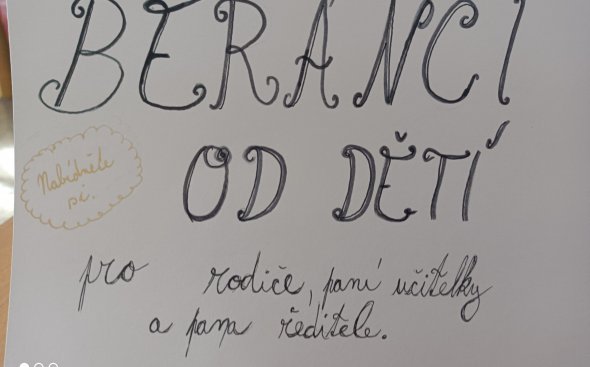 BERÁNCI
OD DĚTÍ
Nabídněte
si.
pro rodiče, paní učitelky
a pana ředitele.